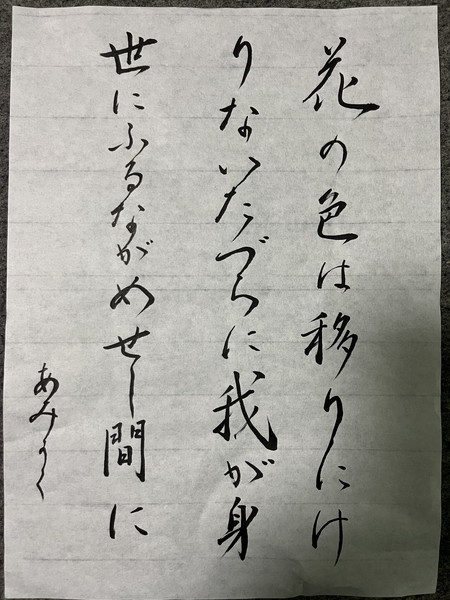 花の色は移りにけ
りないたづらに我が身
世にふるながめせし間に
あみかく